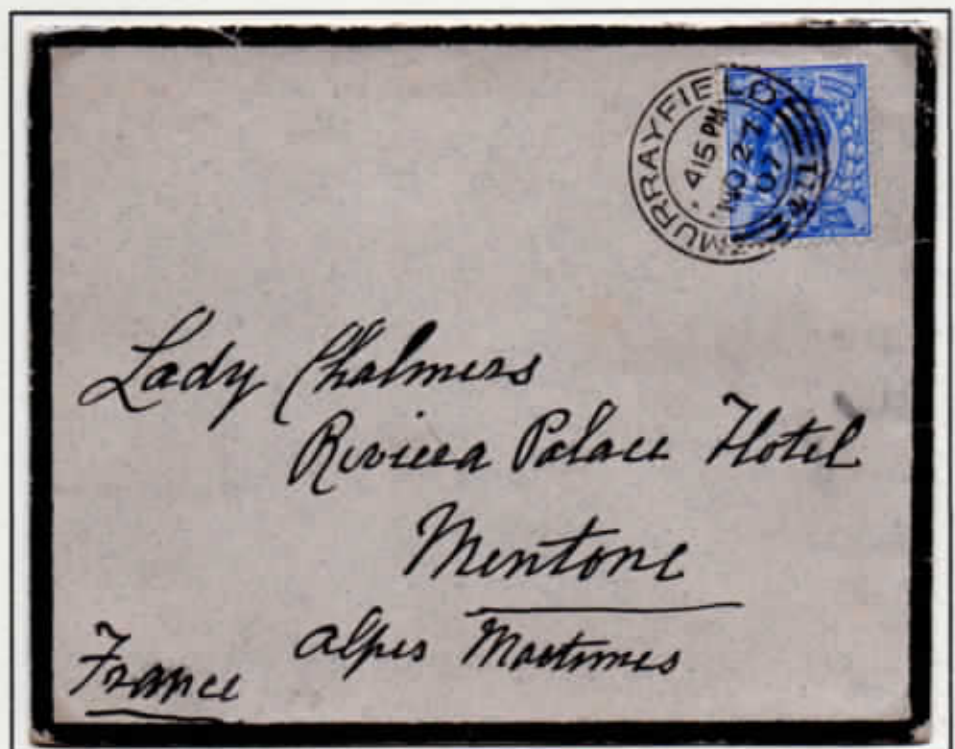 MURRAYFIELD
4 15 PM
NO 27
07
Lady Chalmers
Riviera Palace Hotel
Mentone
Alpes Maritimes
France